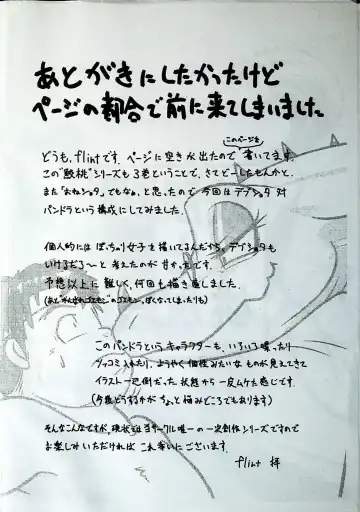 あとがきにしたかったけど
ページの都合で前に来てしまいました
このページを
どうも、flintです。ページに空きが出たので書いてます。
この"餃桃"シリーズも3巻ということで、さてどーしたもんかと、
また"おねショタ"でもなぁ、と思ったので今回はデブショタ対
パンドラという構成にしてみました。
個人的にはぽっちゃり女子を描いてるんだから、デブショタも
いけるだろ〜と考えたのが甘かったです。
予想以上に難しく、何回も描き直しました。
(あと"がんばれゴエモン"のゴエモンっぽくなってしまったりも)
このパンドラというキャラクターも、いろいろ喋ったり
ツッコミ入れたり、ようやく個性みたいなものが見えてきて
イラスト一辺倒だった状態から一皮ムケた感じです。
(今後どうするかがちょっと悩みどころでもあります)
そんなこんなですが、現状は当サークル唯一の一次創作シリーズですので
お楽しみいただければこれ幸いにございます。
flint 拝